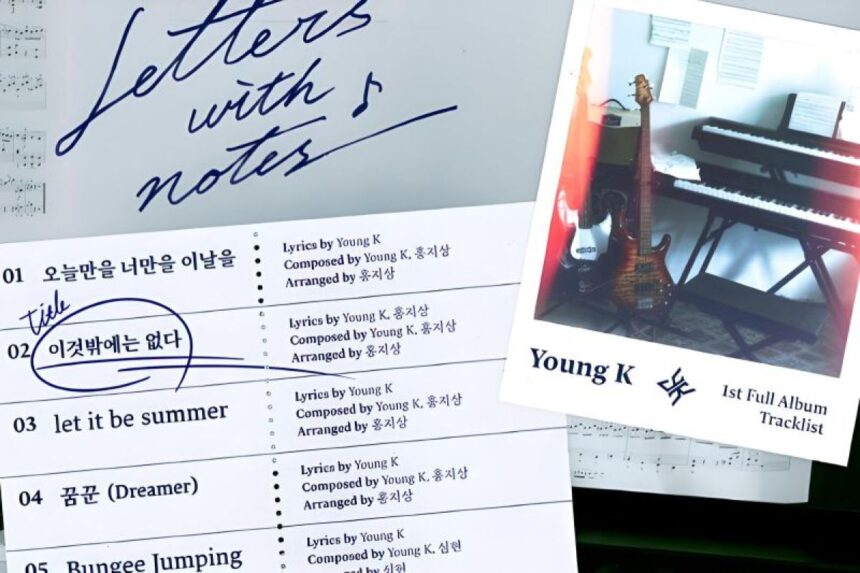 Letters
with
notes
01 오늘만을 너만을 이날을
Lyrics by Young K
Composed by Young K, 홍지상
Arranged by 홍지상
title
02 이것밖에는 없다
Lyrics by Young K, 홍지상
Composed by Young K, 홍지상
Arranged by 홍지상
03 let it be summer
Lyrics by Young K
Composed by Young K, 홍지상
Arranged by 홍지상
04 꿈꾼 (Dreamer)
Lyrics by Young K
Composed by Young K, 홍지상
Arranged by 홍지상
05 Bungee Jumping
Lyrics by Young K
Composed by Young K, 심현
Arranged by 심현
Young K
1st Full Album
Tracklist